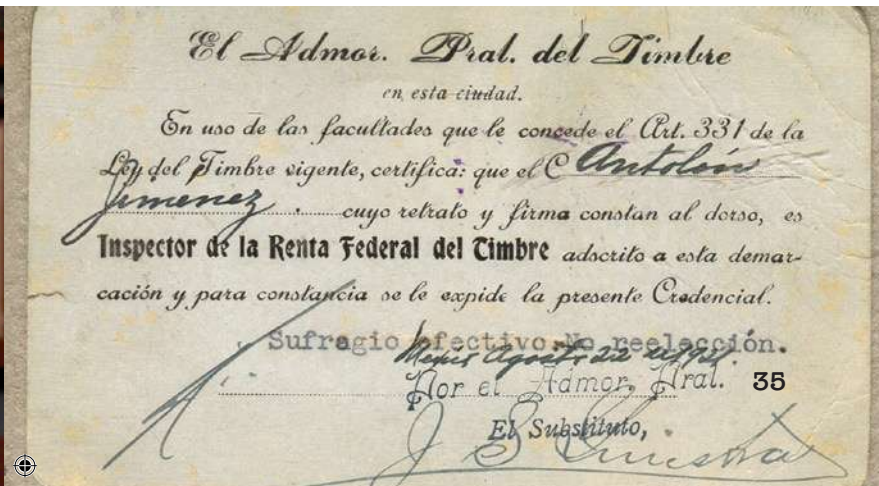 El Admor. Pral. del Timbre
en esta ciudad.
En uso de las facultades que le concede el Art. 331 de la
Ley del Timbre vigente, certifica: que el C Antolín
Jimenez cuyo retrato y firma constan al dorso, es
Inspector de la Renta Federal del Timbre adscrito a esta demar-
cación y para constancia se le expide la presente Credencial.
Sufragio efectivo. No reelección.
Agosto 22
Por el Admor. Pral. 35
El Substituto,